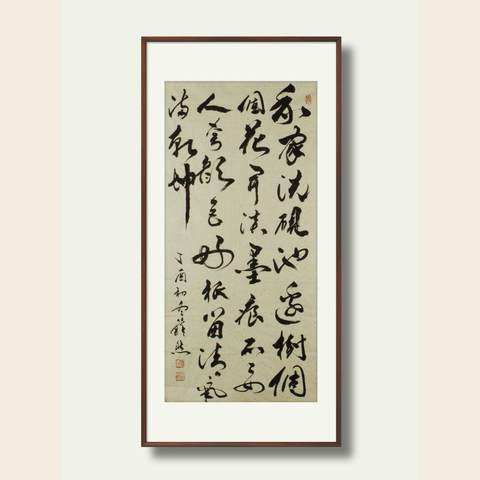 我家洗硯池邊樹個
個花開淡墨痕不要
人夸顏色好祇留清氣
滿乾坤
丁酉初冬